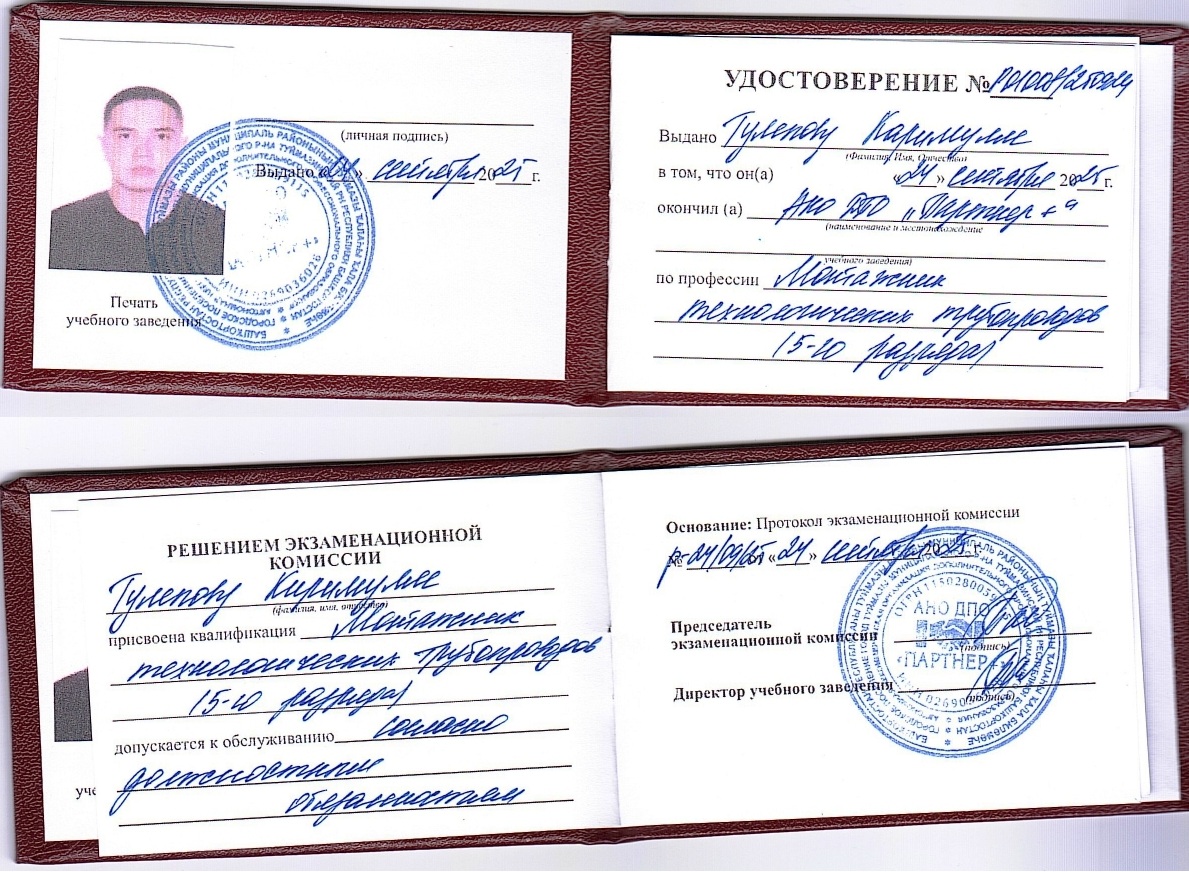 (личная подпись)
Выдано «24» сентября 2025 г.
Печать
учебного заведения
УДОСТОВЕРЕНИЕ №
Выдано Тулепову Каримулле
(Фамилия, Имя, Отчество)
в том, что он(а) «24» сентября 2025 г.
окончил (а) АНО ДПО „Партнер+“
(наименование и местонахождение
учебного заведения)
по профессии Монтажник
технологических трубопроводов
(5-го разряда)
РЕШЕНИЕМ ЭКЗАМЕНАЦИОННОЙ
КОМИССИИ
Тулепову Каримулле
(фамилия, имя, отчество)
присвоена квалификация Монтажник
технологических трубопроводов
(5-го разряда)
допускается к обслуживанию согласно
должностным
обязанностям
Основание: Протокол экзаменационной комиссии
№ р-24/09/25 «24» сентября 2025 г.
Председатель
экзаменационной комиссии
(подпись)
Директор учебного заведения
(подпись)
АНО ДПО
«ПАРТНЕР+»